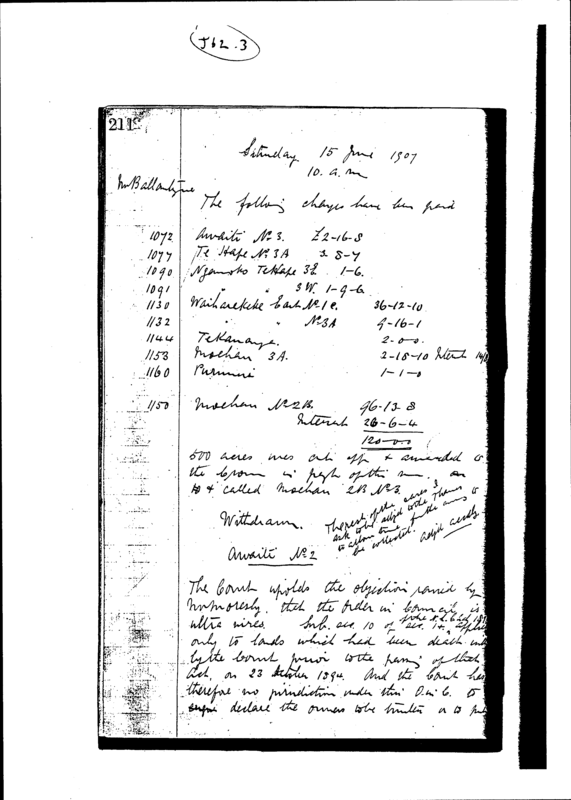 J62.3
211
Saturday 15 June 1907
10. a.m
Mr Ballantyne
The following charges have been paid
1072 Awaiti No 3. £2-16-8
1077 Te Hape No 3A 2 8-7
1090 Ngamoko Te Hape 1-6.
1091 " 3W. 1-9-6
1130 Waiharakeke East No 1c. 36-12-10
1132 " " No 3A 9-16-1
1144 Te Kananga. 2-0-0.
1153 Moehau 3A. 2-18-10 Interest
1160 1-1-0
1150 Moehau No 2B 96-13-8
Interest 26-6-4
120-0-0
500 acres was cut off & awarded to
the Crown in of this sum. an
& called Moehau 2B No 3.
Withdrawn.
The rest of the acres 3
ask to be adjd to the Thames
to allow time for the sums to
be collected. adjd accdly
Awaiti No 2
The Court upholds the objection raised by
Mr Moresby, that the Order in Council is
ultra vires. Sub. sec. 10 of sec. 14, applies
only to lands which had been dealt with
by the Court prior to the passing of that
Act, on 23 October 1894. And the Court has
therefore no jurisdiction under this O. in C. to
declare the owners to be trustees or to